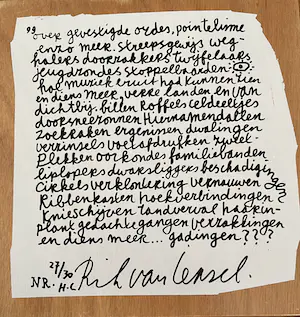 "over gevestigde ordes, pointelisme
enzo meer. streepsgewijs weg-
halers doorzakkers twijfelaars
jeugdzondes stoppelbaarden
hal muziek eruit had kunnen zien
en diens meer, verre landen en van
dichtbij. billen koffers celdeeltjes
doorsneeronnen Hiernamendatten
zoekraken ergenissen dwalingen
verrinsels voetafdrukken zweet-
Plekken oorkondes familiebanden
liplopers dwarsliggers beschadigin
cirkels verklontering vernauwen gen
Ribbenkasten hoekverbindingen
Knieschijven tandverval haarkin-
plank gedachtegangen verzakkingen
en diens meer... gadingen ???
27/30
NR. H.C Rik van Iersel.